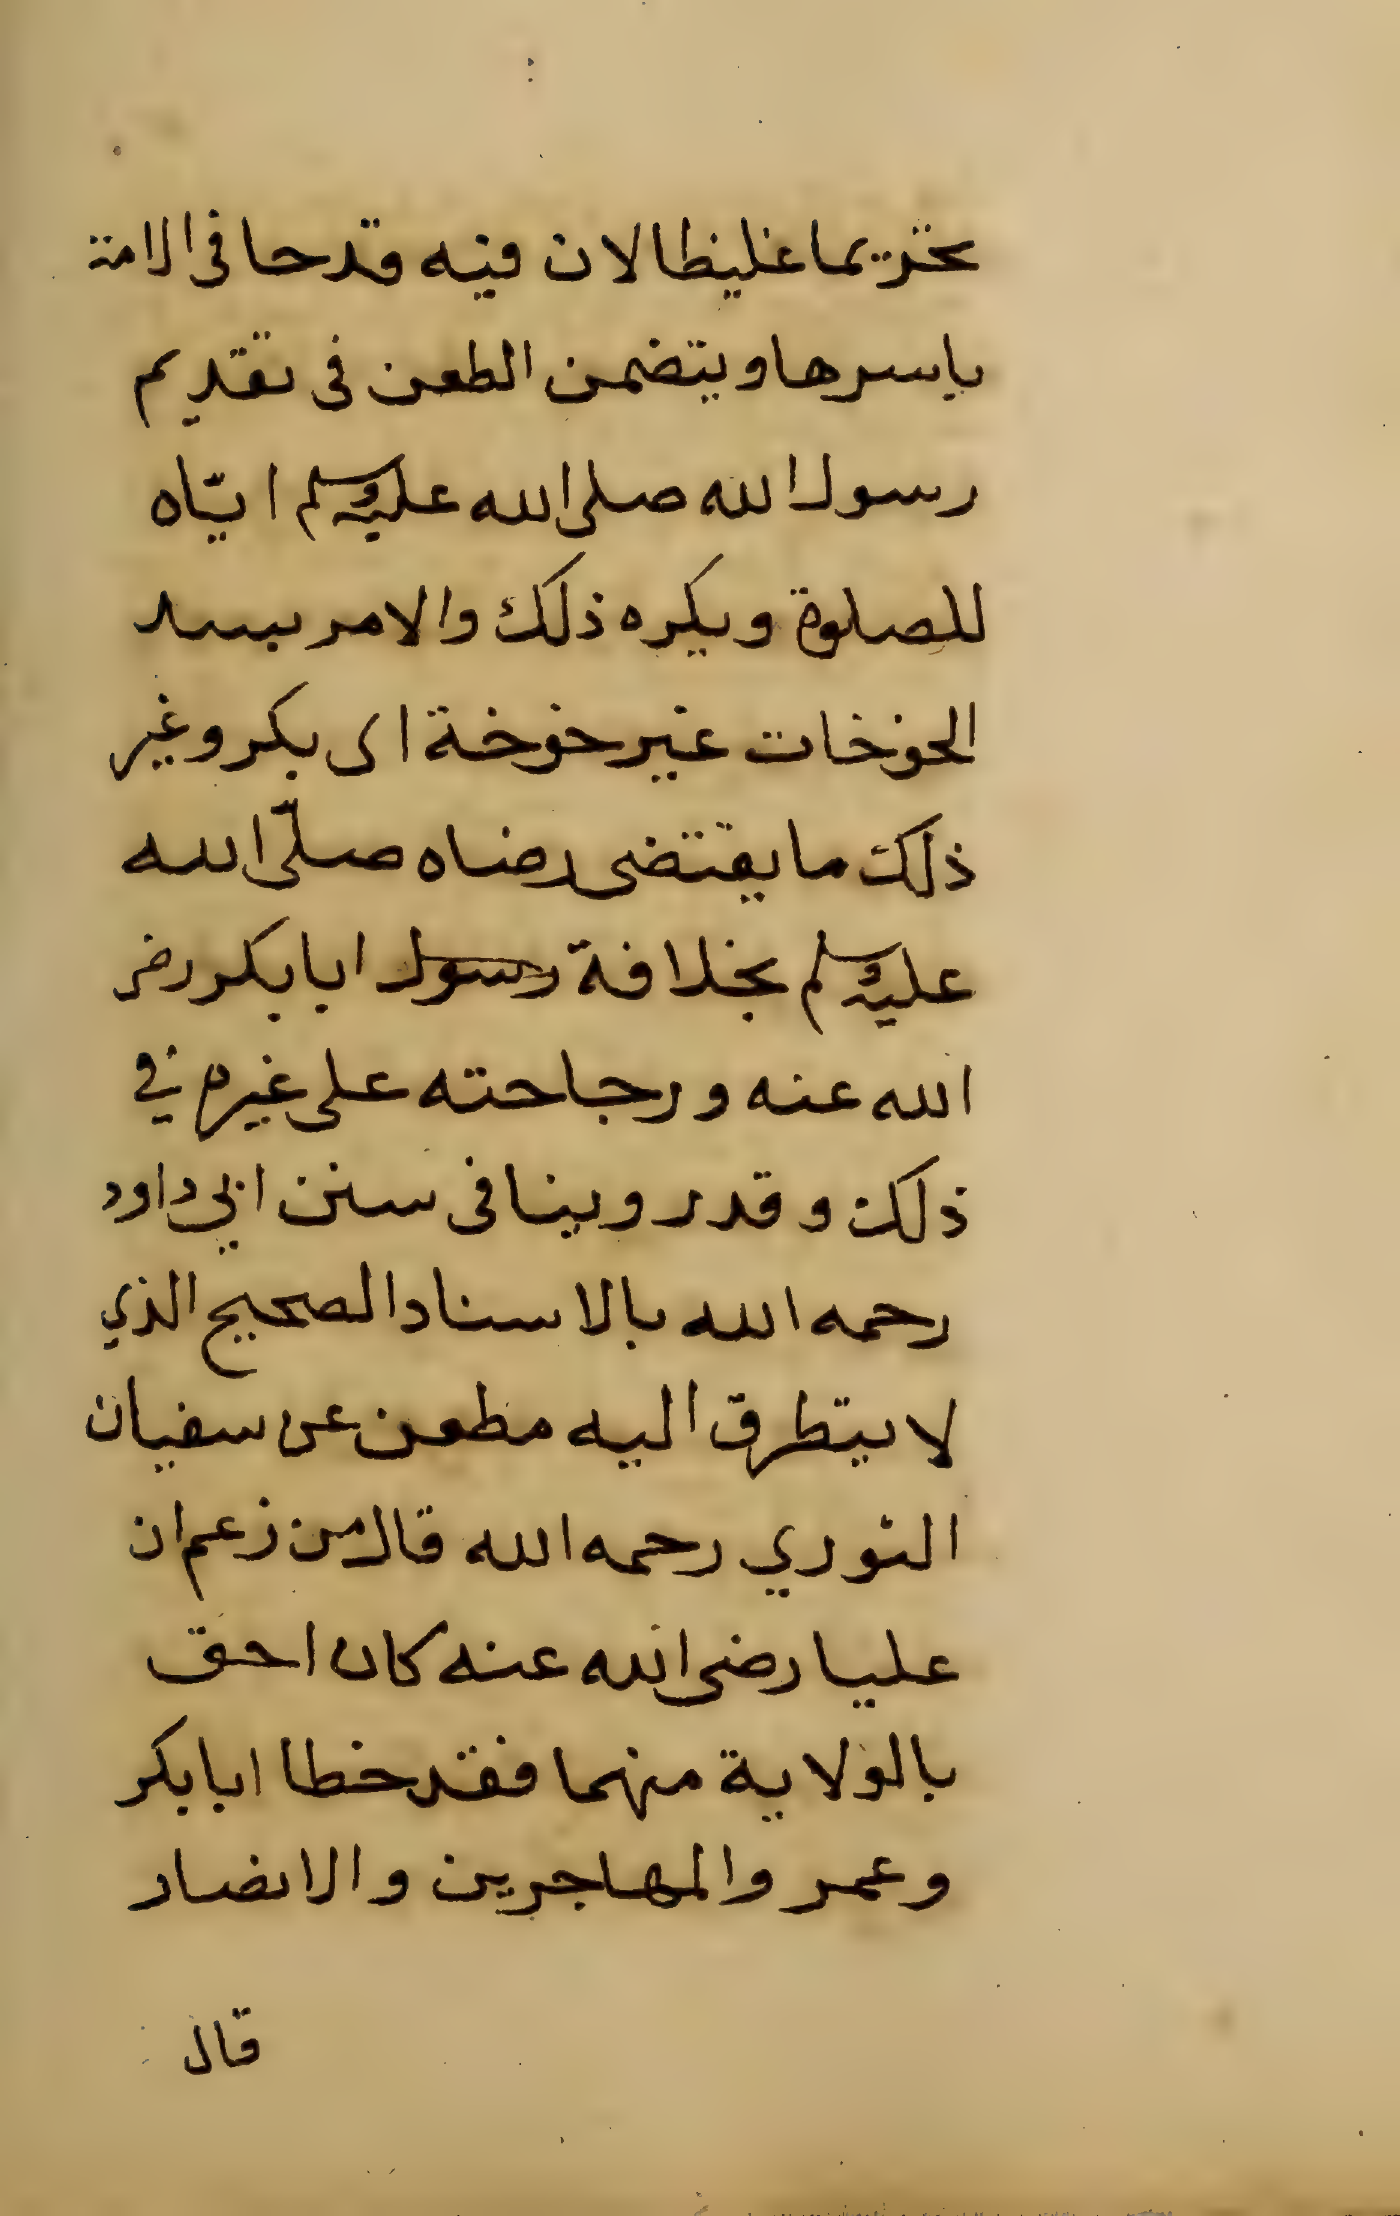 تحريما غليظا لان فيه قدحا فى الامة
باسرها ويتضمن الطعن فى تقديم
رسول الله صلى الله عليه وسلم ايّاه
للصلوة ويكره ذلك والامر بسد
الخوخات غير خوخة ابى بكر وغير
ذلك ما يقتضى رضاه صلّى الله
عليه وسلم بخلافة رسول ابا بكر رضى
الله عنه ورجاحته على غيره في
ذلك وقد روينا فى سنن ابي داود
رحمه الله بالاسناد الصحيح الذي
لا يتطرق اليه مطعن عن سفيان
الثوري رحمه الله قال من زعم ان
عليا رضى الله عنه كان احق
بالولاية منهما فقد خطا ابا بكر
وعمر والمهاجرين والانصار
قال